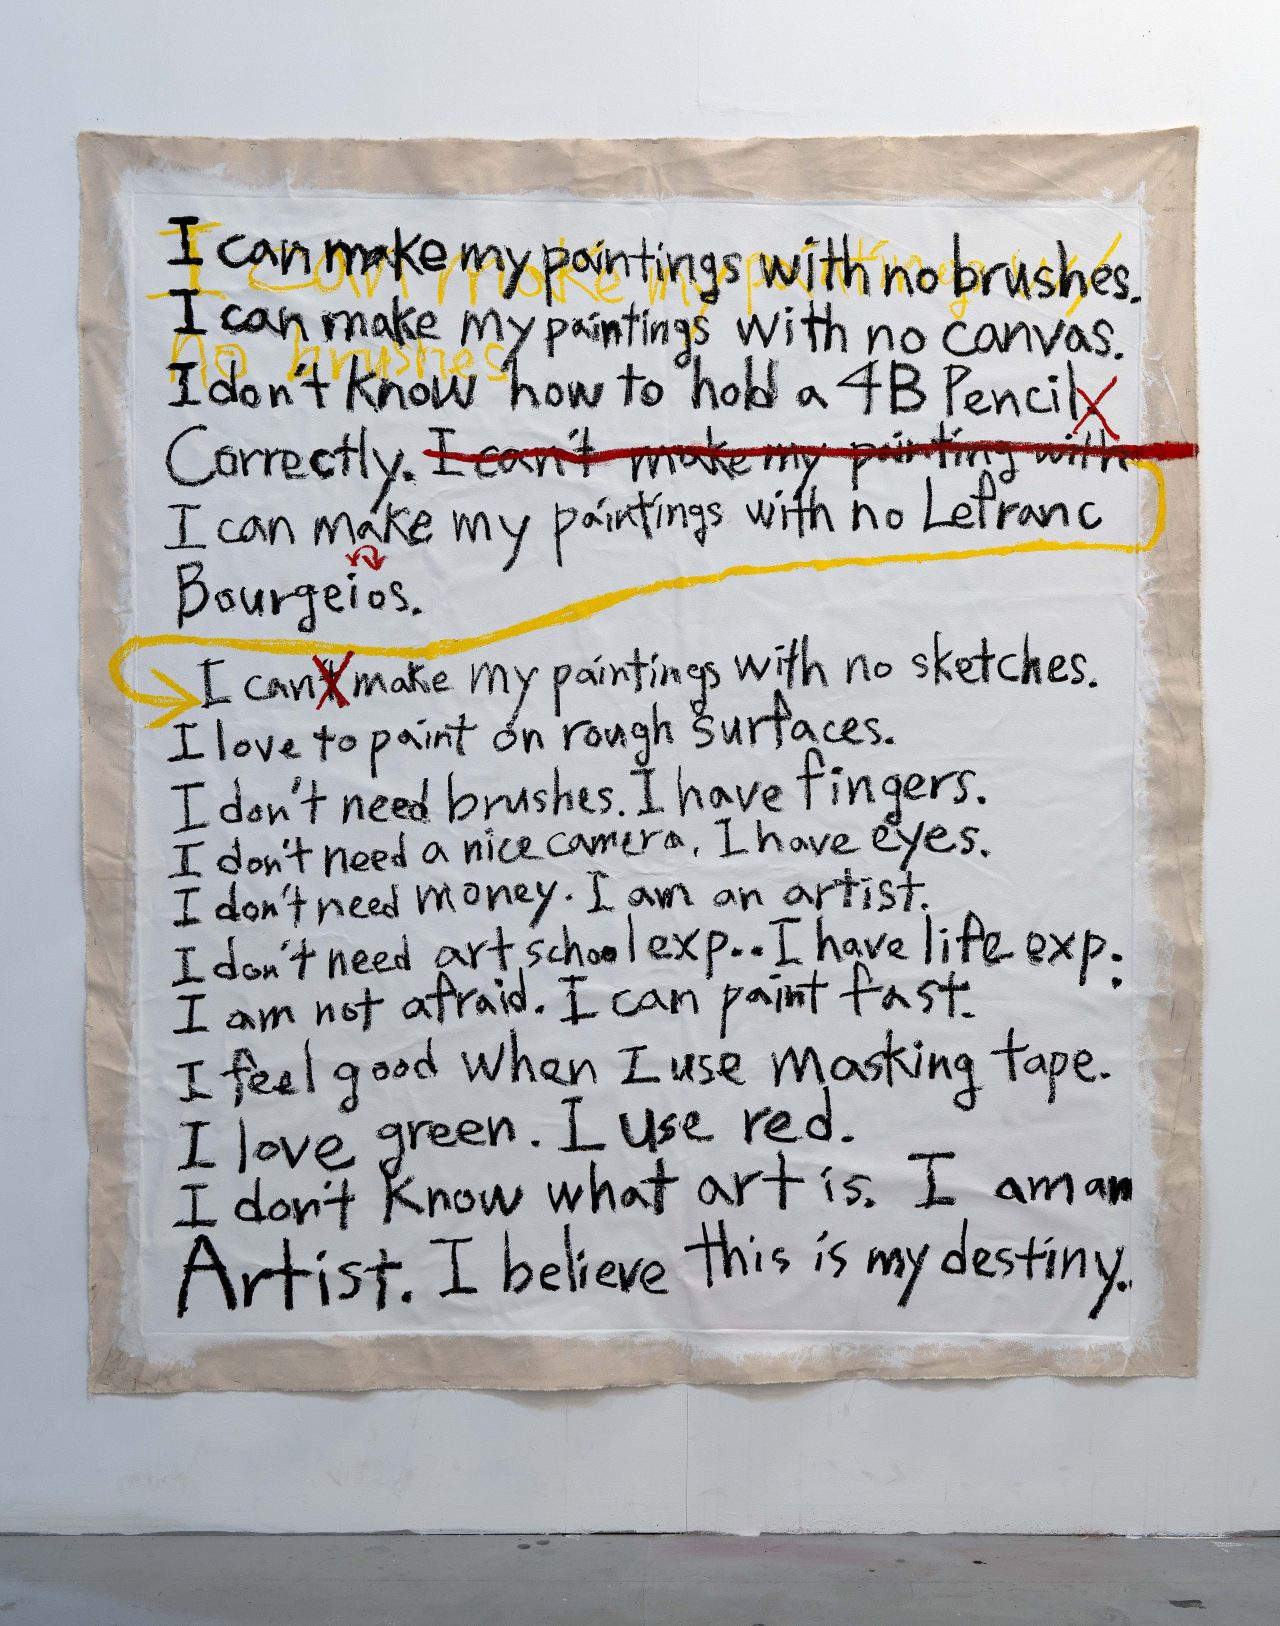 I can make my paintings with no brushes.
I can make my paintings w/
I can make my paintings with no canvas.
no brushes
I don't know how to hold a 4B Pencil.
Correctly. I can't make my painting with
I can make my paintings with no Lefranc
Bourgeios.
I can't make my paintings with no sketches.
I love to paint on rough surfaces.
I don't need brushes. I have fingers.
I don't need a nice camera. I have eyes.
I don't need money. I am an artist.
I don't need art school exp.. I have life exp.
I am not afraid. I can paint fast.
I feel good when I use masking tape.
I love green. I use red.
I don't know what art is. I am an
Artist. I believe this is my destiny.